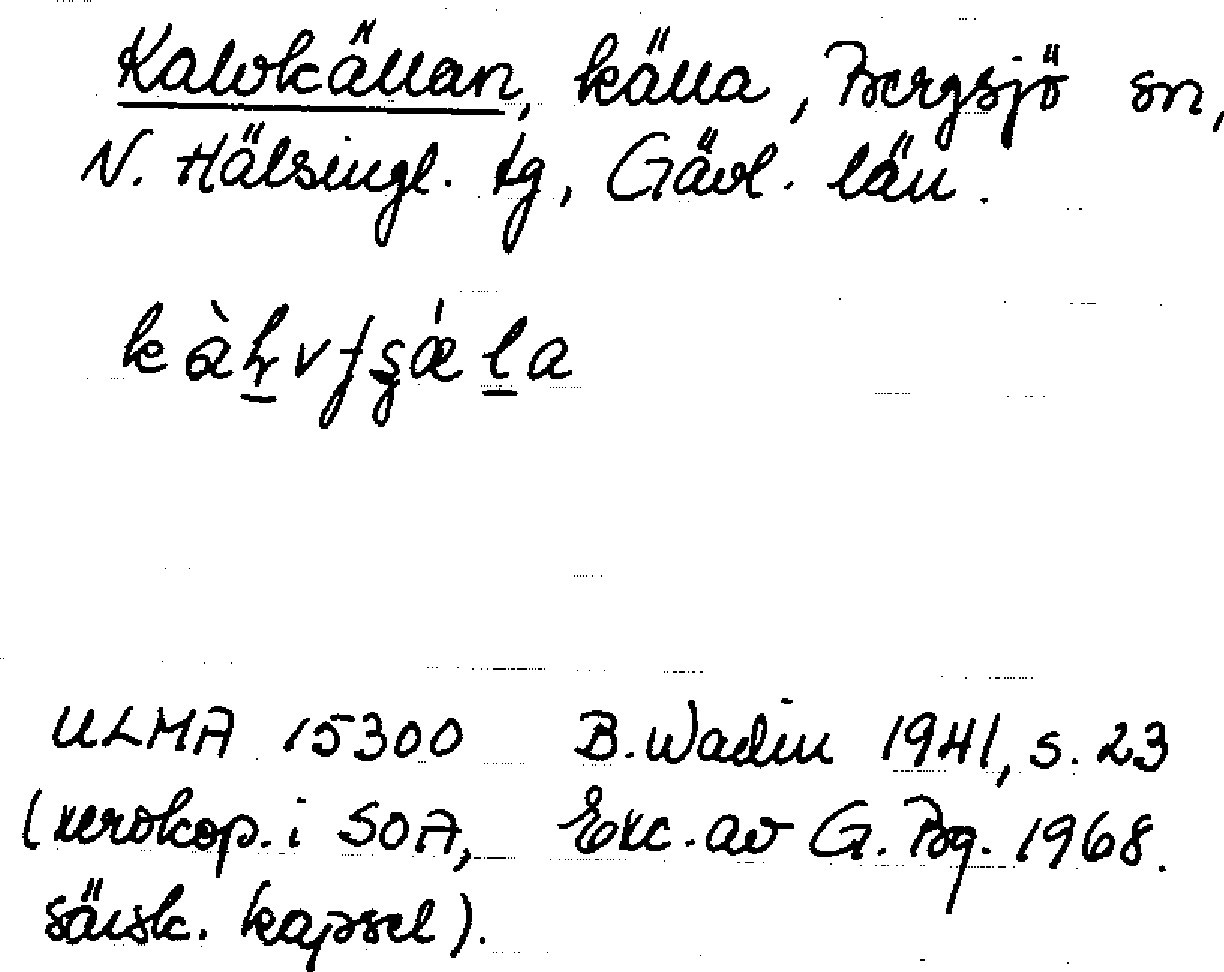 Kalvkällan, källa, Bergsjö sn,
N. Hälsingl. tg, Gävl. län.
ULMA 15300 B. Wadin 1941, s. 23
(xerokop. i SOA, Exc. av G. Bg. 1968.
särsk. kapsel).